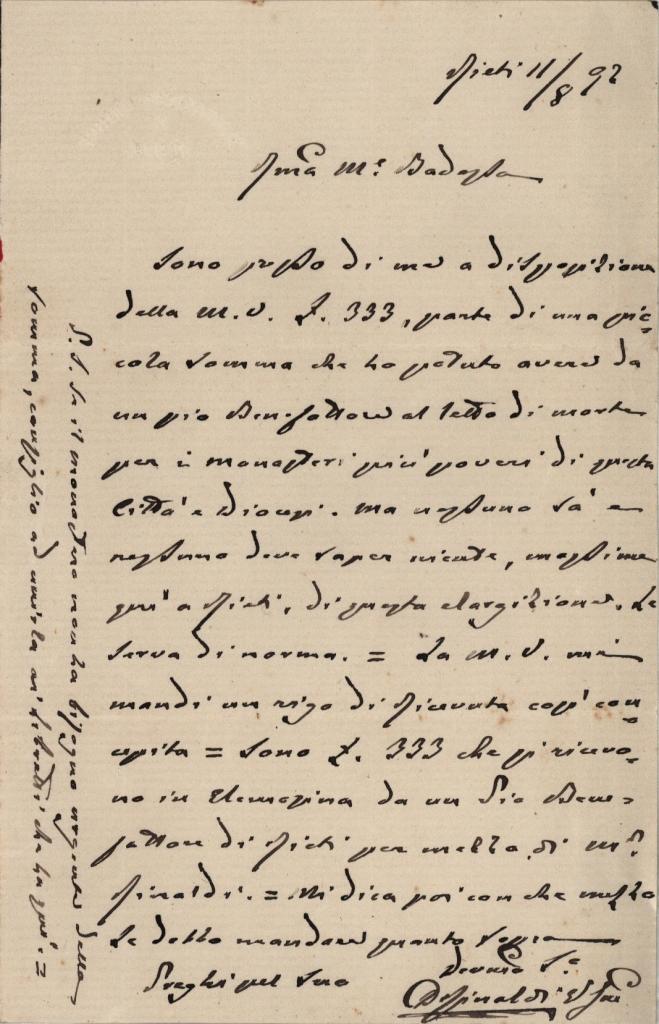 Rieti 11/8 92
Rma Me Badessa
Sono presso di me a disposizione
della M. V. L. 333, parte di una pic=
cola somma che ho potuto avere da
un pio Benefattore al letto di morte
per i monasteri più poveri di questa
Città e Diocesi. Ma nessuno sà e
nessuno deve saper niente, massime
quì a Rieti, di questa elargizione. Le
serva di norma. = La M. V. mi
mandi un rigo di ricevuta così con=
cepita = Sono L. 333 che si ricevo=
no in Elemosina da un Pio Bene=
fattore di Rieti per mezzo di Mr
Rinaldi. = Mi dica poi con che mezzo
Le debbo mandare quanto sopra
Preghi pel Suo
Devmo Se
D Rinaldi
P. S. Se il monastero non ha bisogno urgente della
somma, consiglio ad unirla ai libretti che ha quì. =